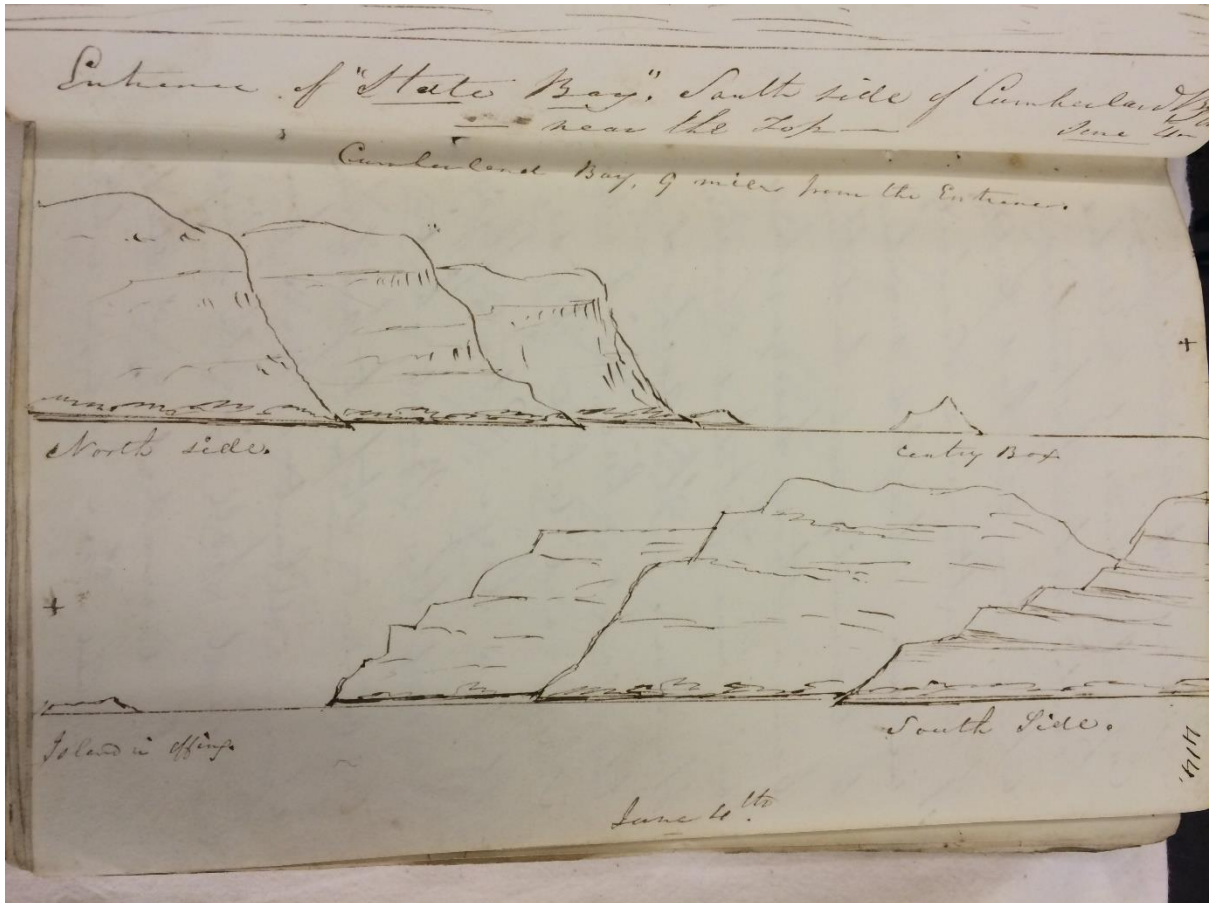 Entrance of "State Bay". South side of Cumberland
near the Top
June 4
Cumberland Bay, 9 miles from the Entrance.
+
North side.
Centry Box
+
Island in offing.
South Side.
414.
June 4th.